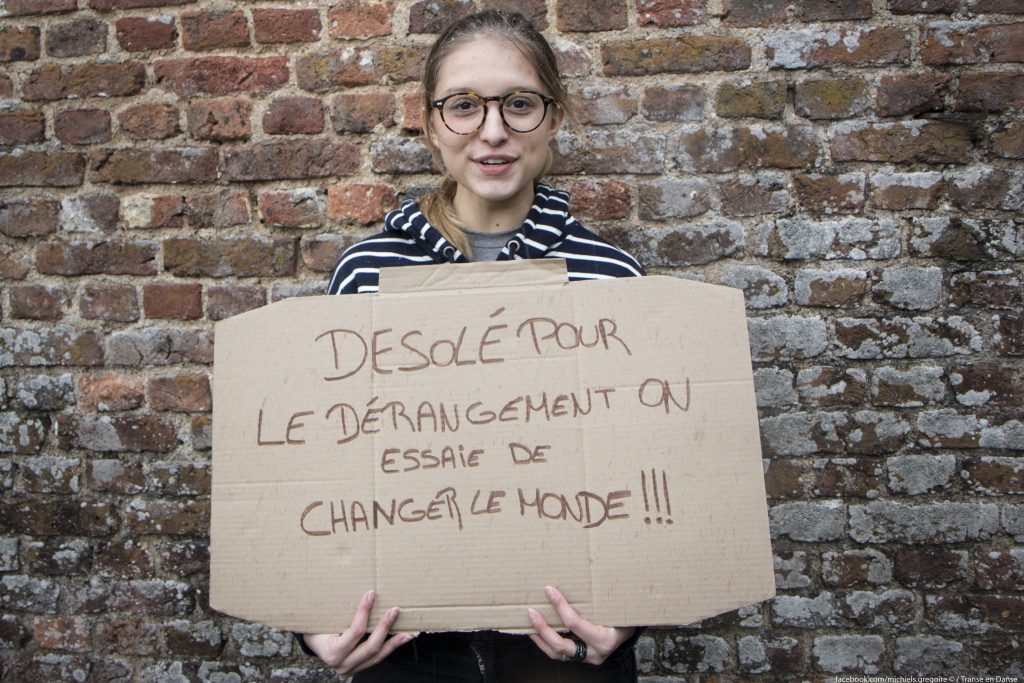 DESOLÉ POUR
LE DÉRANGEMENT ON
ESSAIE DE
CHANGER LE MONDE !!!
facebook.com/michiels.gregoire © / Transe en Danse